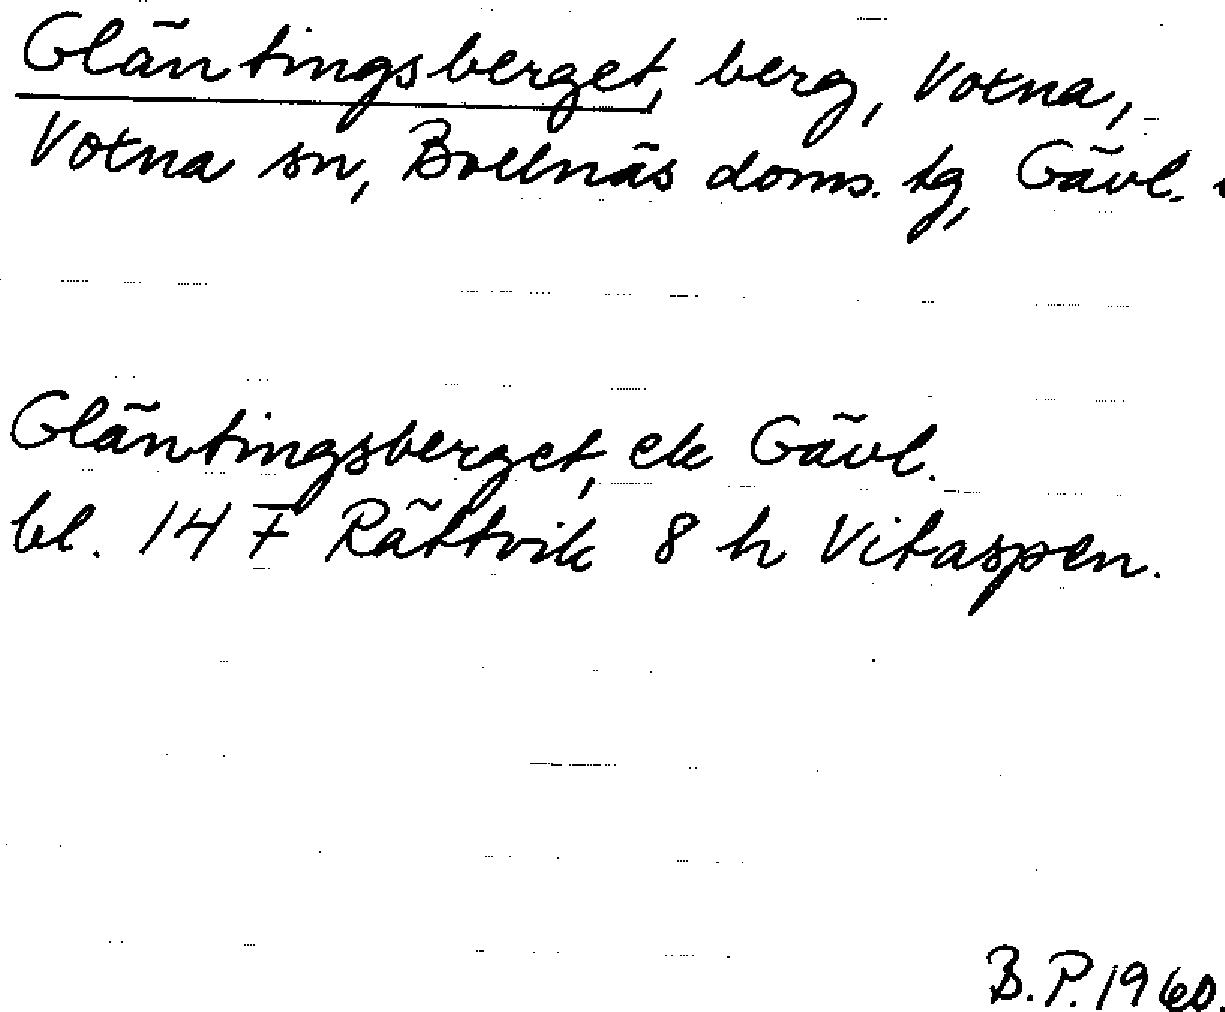 Gläntingsberget, berg, Votna,
Votna sn, Bollnäs doms. tg, Gävl.
Gläntingsberget, ek Gävl.
bl. 14 F Rättvik 8 h Vitaspen.
B.P. 1960.